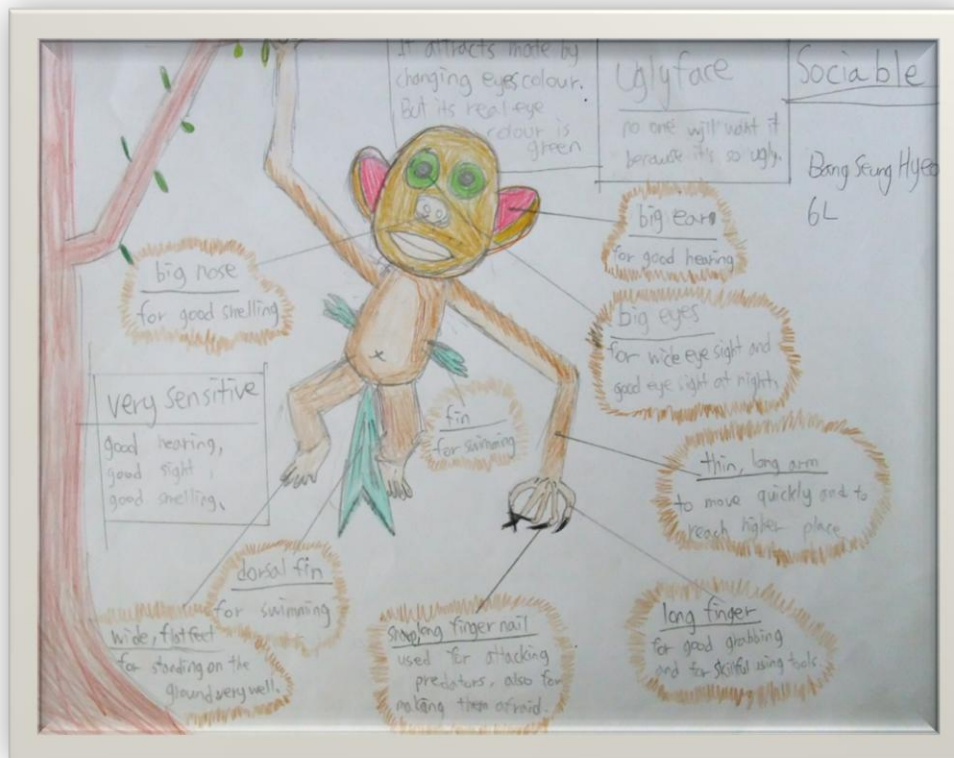 It attracts mate by
changing eyes colour.
But its real eye
colour is
green
Ugly face
no one will want it
because it's so ugly.
Sociable
Bang Seung Hyeo
6L
big ears
for good hearing
big nose
for good smelling
big eyes
for wide eye sight and
good eye sight at night.
very sensitive
good hearing,
good sight,
good smelling.
fin
for swimming
thin, long arm
to move quickly and to
reach higher place
dorsal fin
for swimming
wide, flat feet
for standing on the
ground very well.
long finger nail
used for attacking
predators, also for
making them afraid.
long finger
for good grabbing
and for skilful using tools